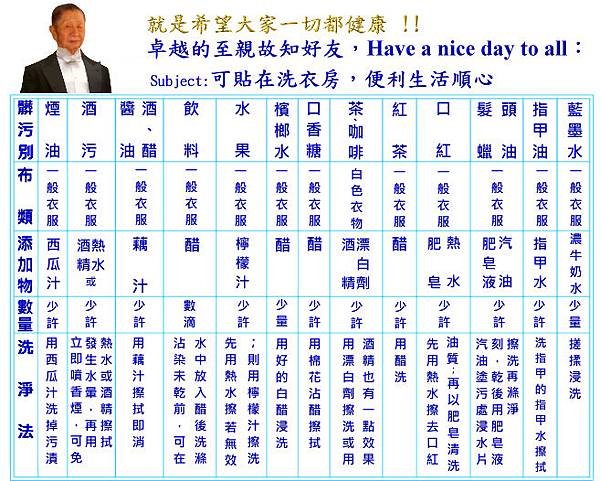 就是希望大家一切都健康 !!
卓越的至親故知好友，Have a nice day to all：
Subject:可貼在洗衣房，便利生活順心
髒污別
布類
添加物
數量
洗淨法
煙油
一般衣服
西瓜汁
少許
用西瓜汁洗掉污漬
酒污
一般衣服
酒精
熱水或
少許
立即噴香煙，可免
發生水暈．再用
熱水或酒精擦拭
醬油
酒、醋
一般衣服
藕汁
少許
用藕汁擦拭即消
飲料
一般衣服
醋
數滴
沾染未乾前．可在
水中放入醋後洗滌
水果
一般衣服
檸檬汁
少許
先用熱水擦若無效
；則用檸檬汁擦洗
檳榔水
一般衣服
醋
少量
用好的白醋浸洗
口香糖
一般衣服
醋
少許
用棉花沾醋擦拭
茶、咖啡
白色衣物
酒精
漂白劑
少許
用漂白劑擦洗或用
酒精也有一點效果
紅茶
一般衣服
醋
少許
用醋洗
口紅
一般衣服
肥皂
熱水
少許
先用熱水擦去口紅
油質；再以肥皂清洗
髮蠟
頭油
一般衣服
肥皂液
汽油
少許
汽油塗污處浸水片
刻．乾後用肥皂液
擦洗再滌淨
指甲油
一般衣服
指甲水
少許
洗指甲的指甲水擦拭
藍墨水
一般衣服
濃牛奶水
少量
搓揉浸洗